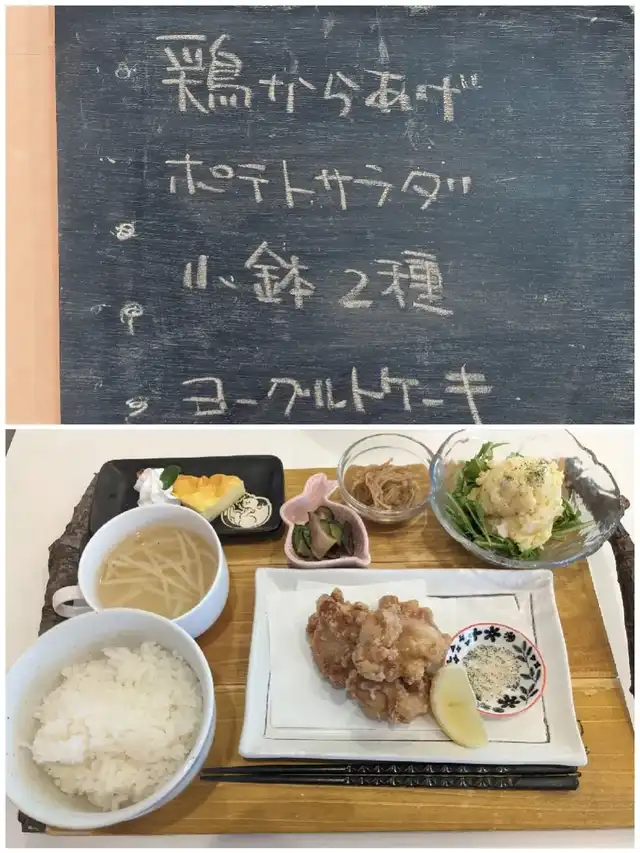 鶏からあげ
ポテトサラダ
小鉢 2種
ヨーグルトケーキ